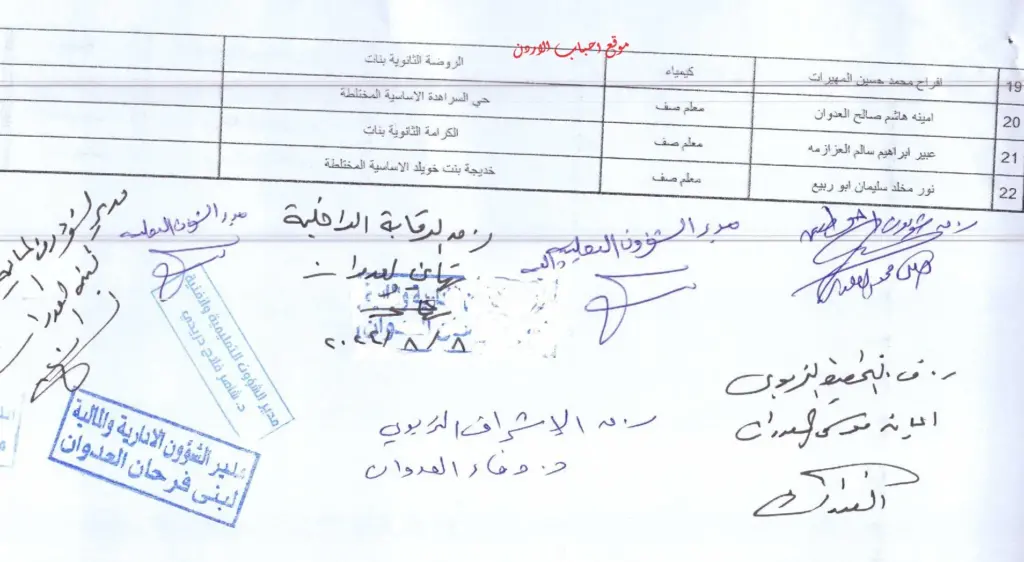 موقع احباب الاردن
19 افراح محمد حسين المهيرات كيمياء الروضة الثانوية بنات
20 امينه هاشم صالح العدوان معلم صف حي السراهدة الاساسية المختلطة
21 عبير ابراهيم سالم العزازمه معلم صف الكرامة الثانوية بنات
22 نور مخلد سليمان ابو ربيع معلم صف خديجة بنت خويلد الاساسية المختلطة
مدير الشؤون التعليمية
ر.قسم الرقابة الداخلية
مدير الشؤون التعليمية
مدير الشؤون
٨/٨/٢٠٢٢
مدير الشؤون التعليمية والفنية
د. شاهر فلاح دريدي
مدير الشؤون الادارية والمالية
لبنى فرحان العدوان
ر.ق التخطيط التربوي
العدوان
ر.ق الإشراف التربوي
د. وفاء العدوان